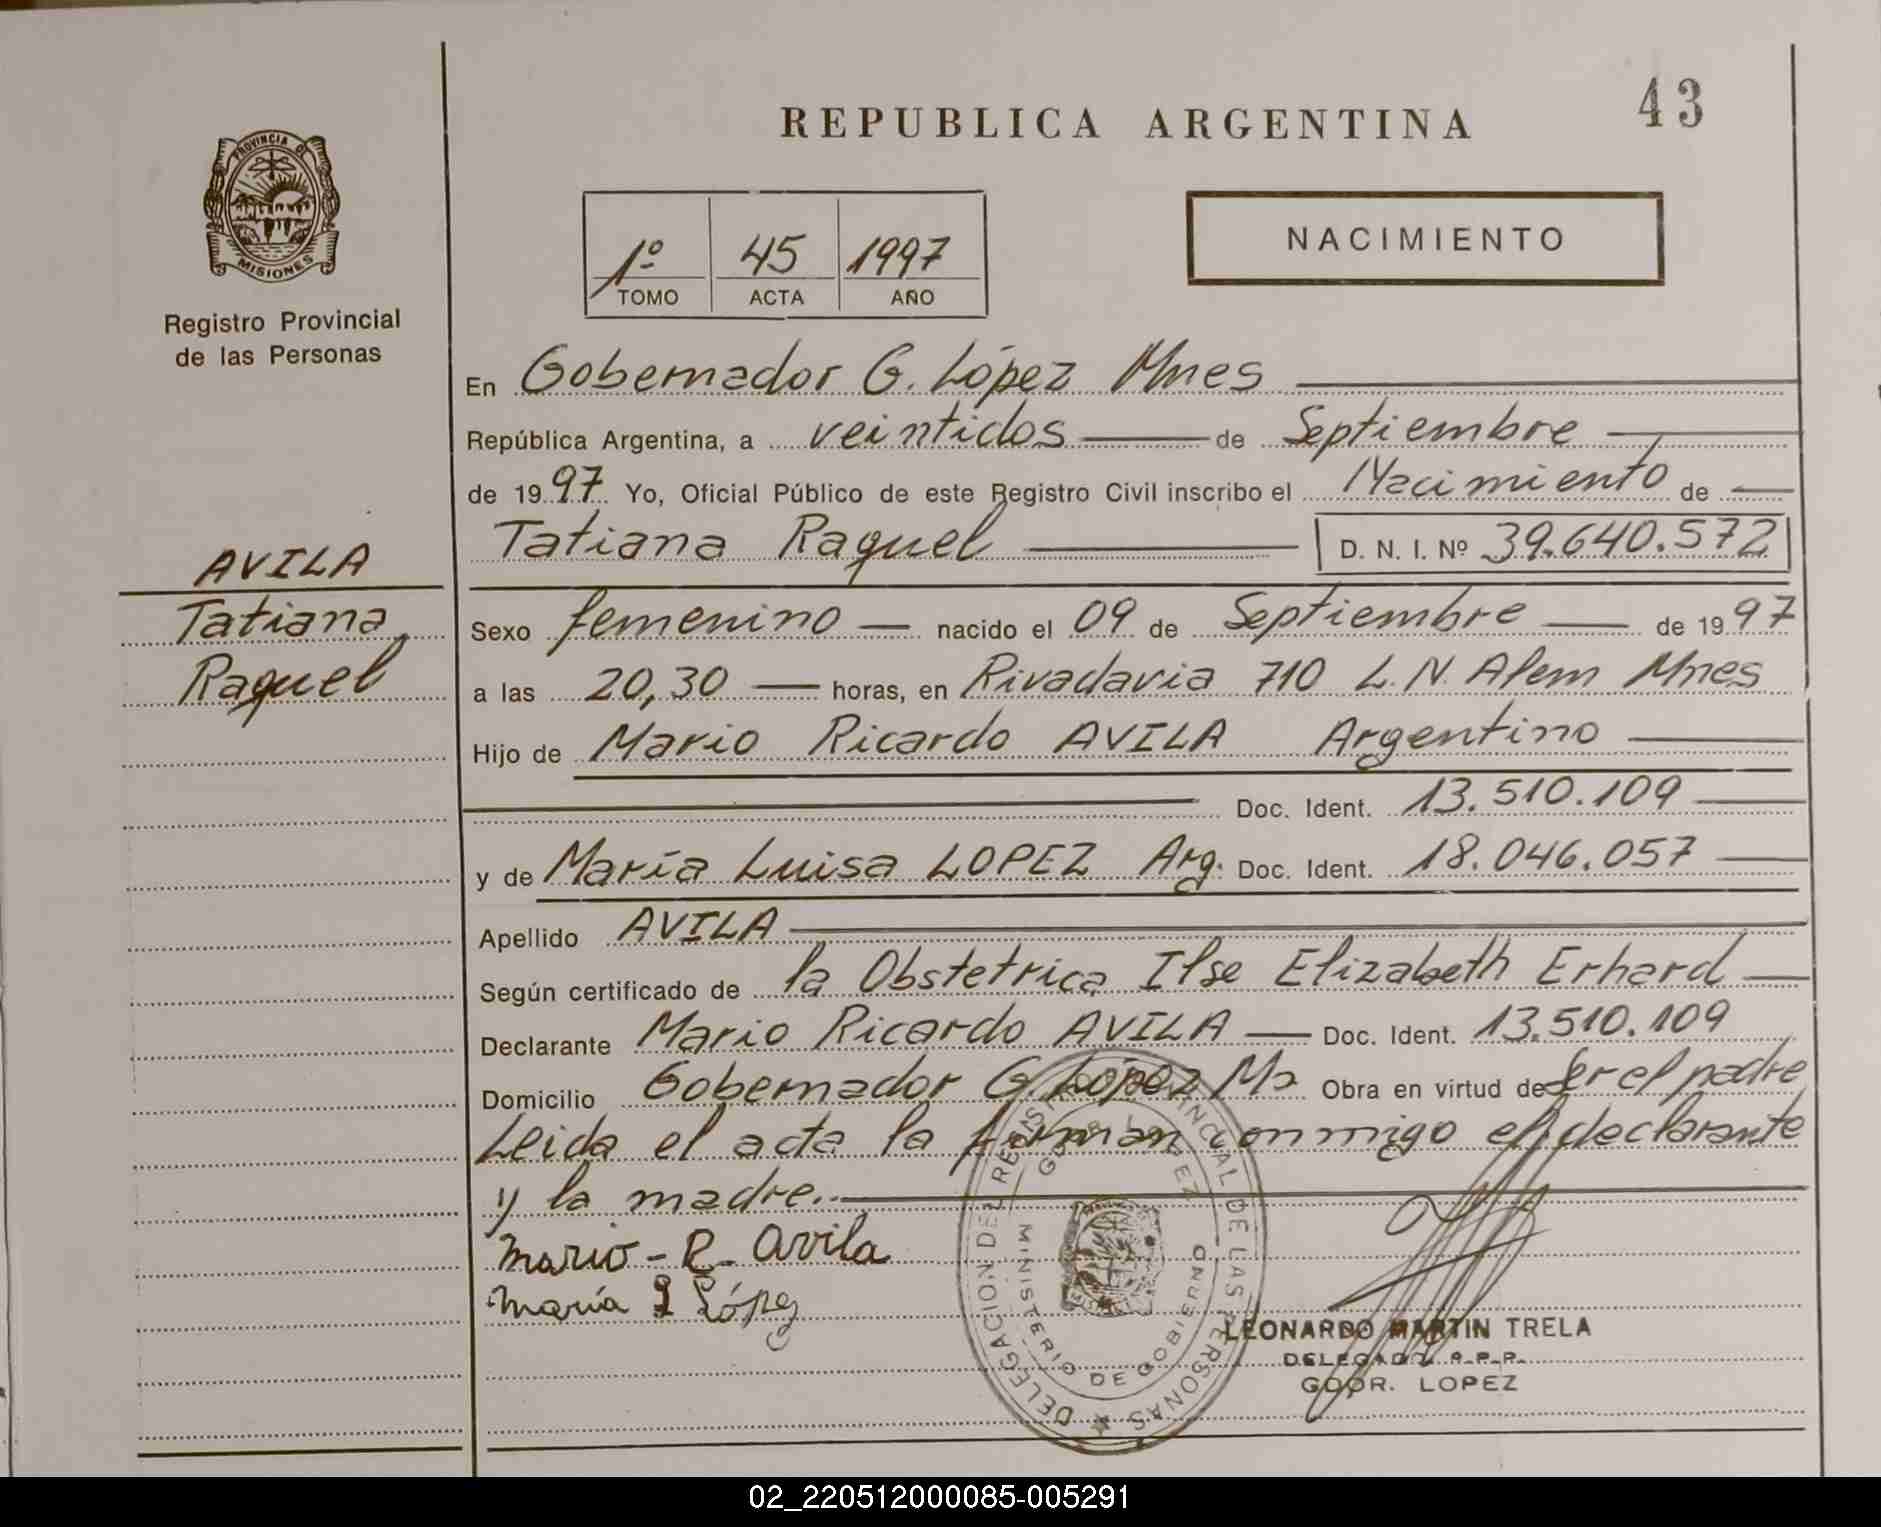 43
REPUBLICA ARGENTINA
PROVINCIA DE
MISIONES
Registro Provincial
de las Personas
1º 45 1997
TOMO ACTA AÑO
NACIMIENTO
En Gobernador G. López Mnes
República Argentina, a veintidos de Septiembre
de 1997 Yo, Oficial Público de este Registro Civil inscribo el Nacimiento de
Tatiana Raquel D. N. I. Nº 39.640.572
AVILA
Tatiana
Raquel
Sexo femenino nacido el 09 de Septiembre de 1997
a las 20,30 horas, en Rivadavia 710 L. N. Alem Mnes
Hijo de Mario Ricardo AVILA Argentino
Doc. Ident. 13.510.109
y de María Luisa LOPEZ Arg. Doc. Ident. 18.046.057
Apellido AVILA
Según certificado de la Obstetrica Ilse Elizabeth Erhard
Declarante Mario Ricardo AVILA Doc. Ident. 13.510.109
Domicilio Gobernador G. López Ms Obra en virtud de Ser el padre
Leida el acta la firman conmigo el declarante
y la madre..
Mario - R - Avila
María L López
DELEGACION DEL REGISTRO PROVINCIAL DE LAS PERSONAS
LOPEZ
MINISTERIO DE GOBIERNO
LEONARDO MARTIN TRELA
DELEGADO R.P.P.
GDOR. LOPEZ
02_220512000085-005291